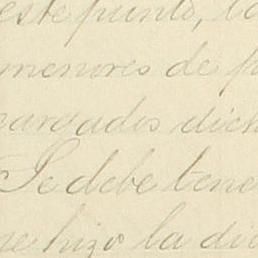 este punto, la
menores de
cargados dich
Se debe tene
se hizo la